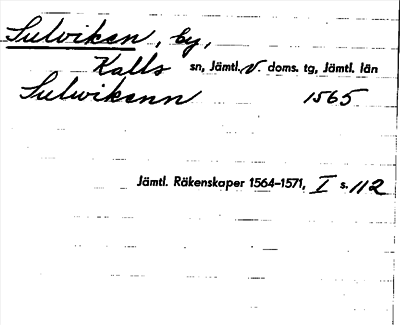 Sulviken, by,
Kalls sn, Jämtl. V. doms. tg, Jämtl. län
Sulwikenn 1565
Jämtl. Räkenskaper 1564-1571, I s. 112